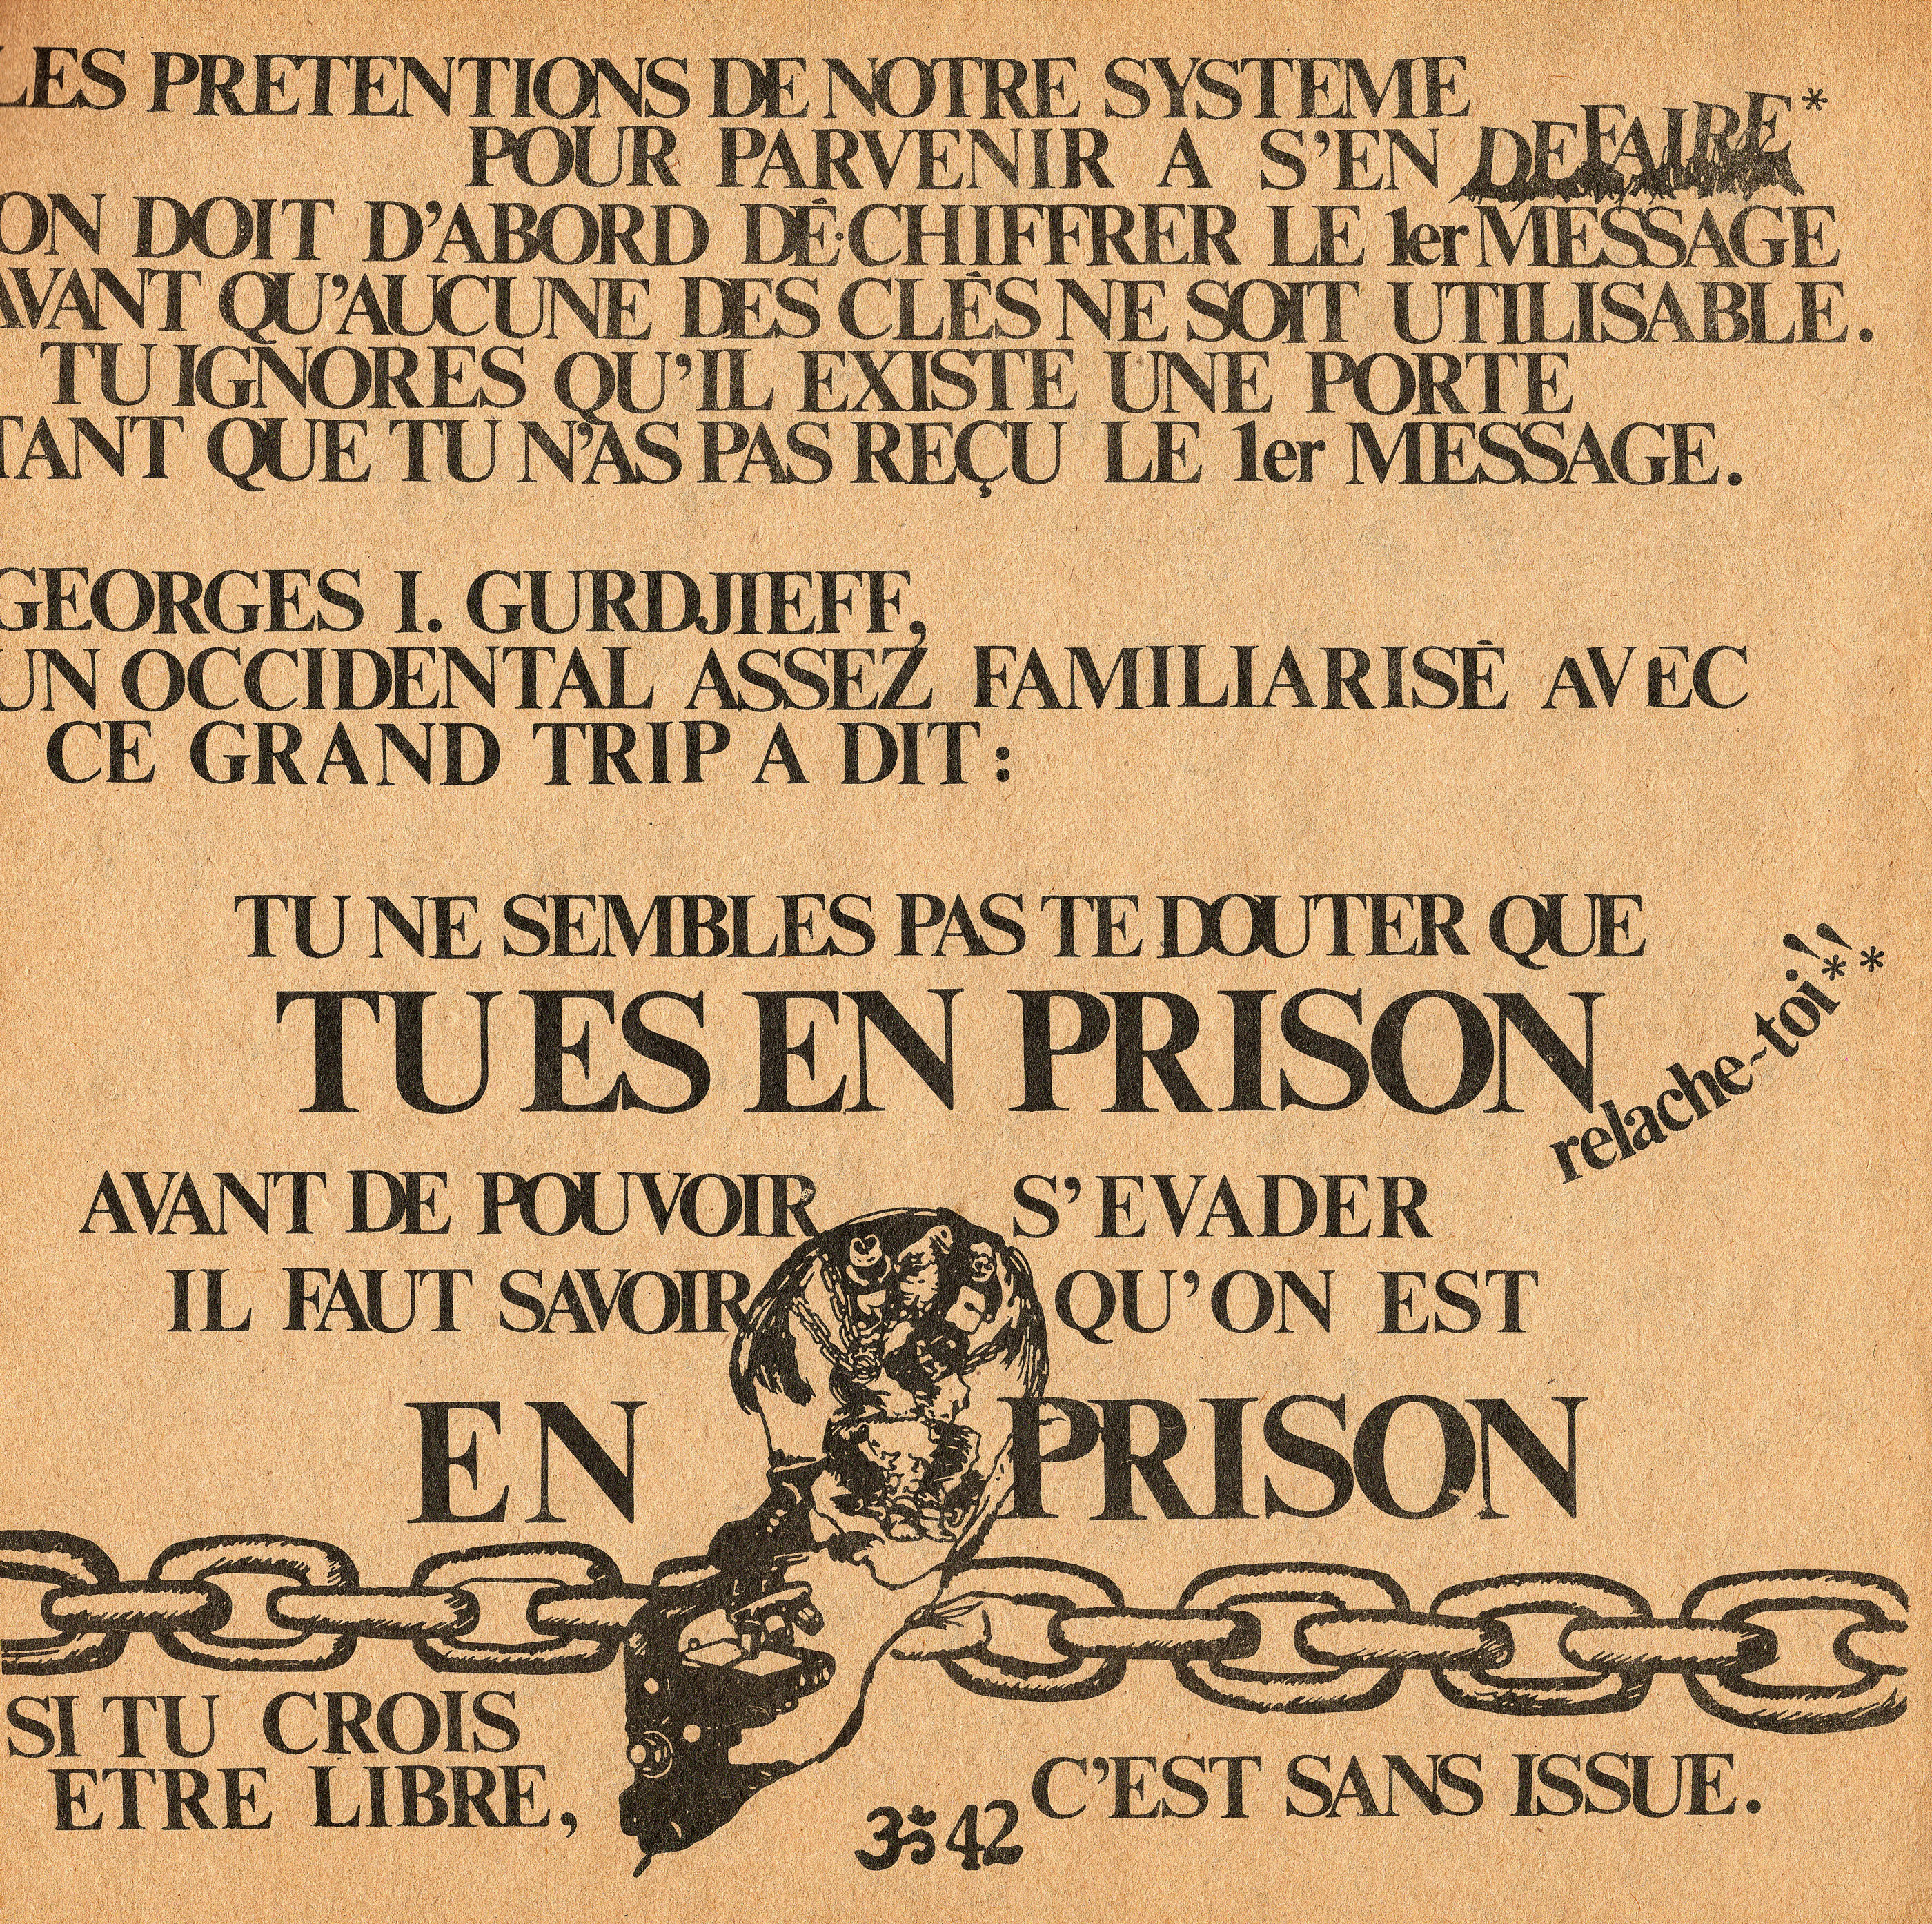 LES PRETENTIONS DE NOTRE SYSTEME
POUR PARVENIR A S'EN DEFAIRE*
ON DOIT D'ABORD DÉ·CHIFFRER LE 1er MESSAGE
AVANT QU'AUCUNE DES CLÉS NE SOIT UTILISABLE.
TU IGNORES QU'IL EXISTE UNE PORTE
TANT QUE TU N'AS PAS REÇU LE 1er MESSAGE.
GEORGES I. GURDJIEFF,
UN OCCIDENTAL ASSEZ FAMILIARISÉ AVEC
CE GRAND TRIP A DIT :
TU NE SEMBLES PAS TE DOUTER QUE
TU ES EN PRISON
relache-toi!!**
AVANT DE POUVOIR S'EVADER
IL FAUT SAVOIR QU'ON EST
EN PRISON
SI TU CROIS
ETRE LIBRE,
C'EST SANS ISSUE.
ॐ 42